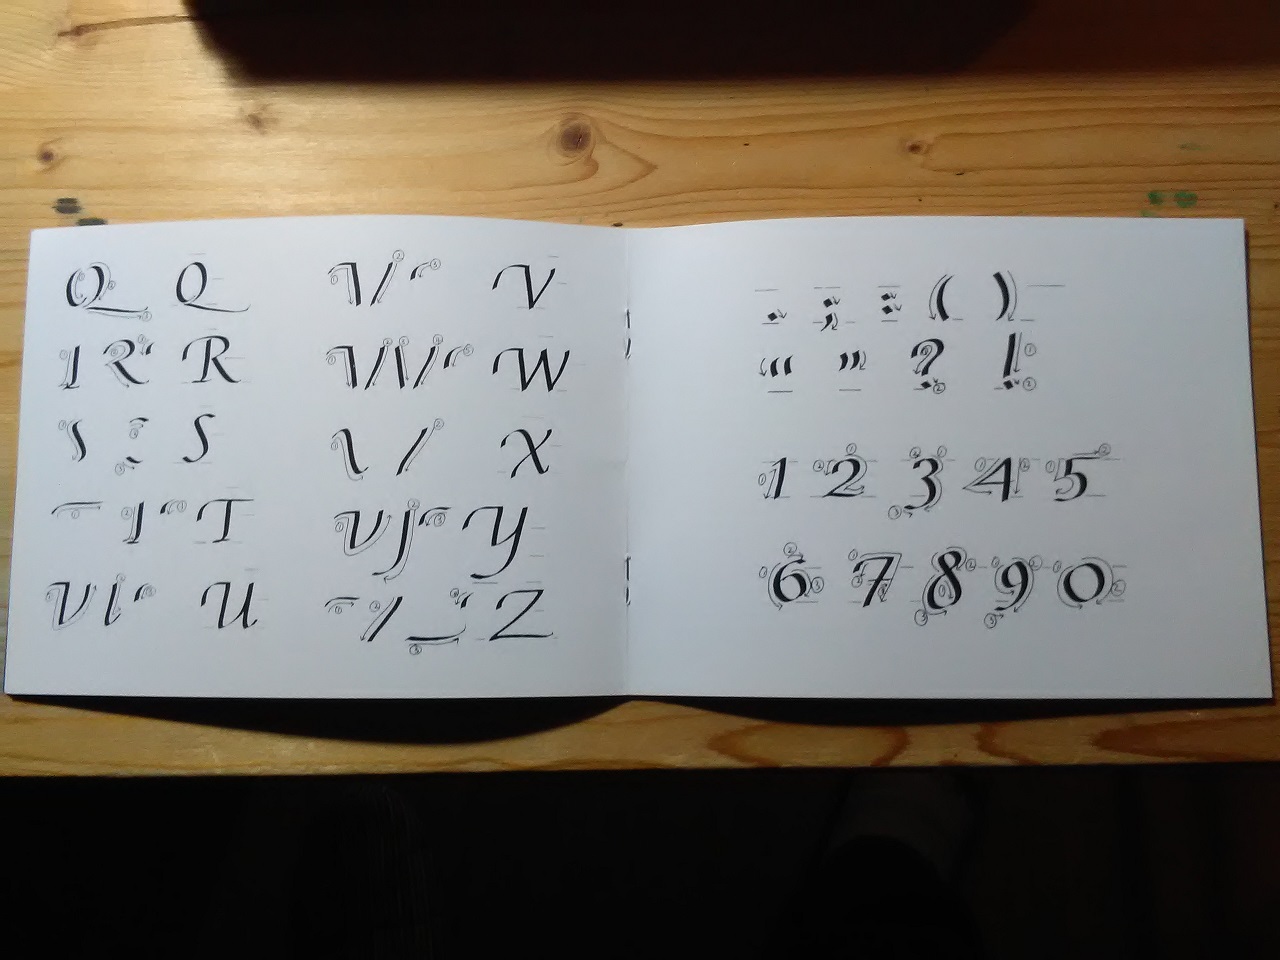 Q Q
R R
S S
T T
U U
V V
W W
X X
Y Y
Z Z
. ; : ( )
“ ” ? !
1 2 3 4 5
6 7 8 9 0